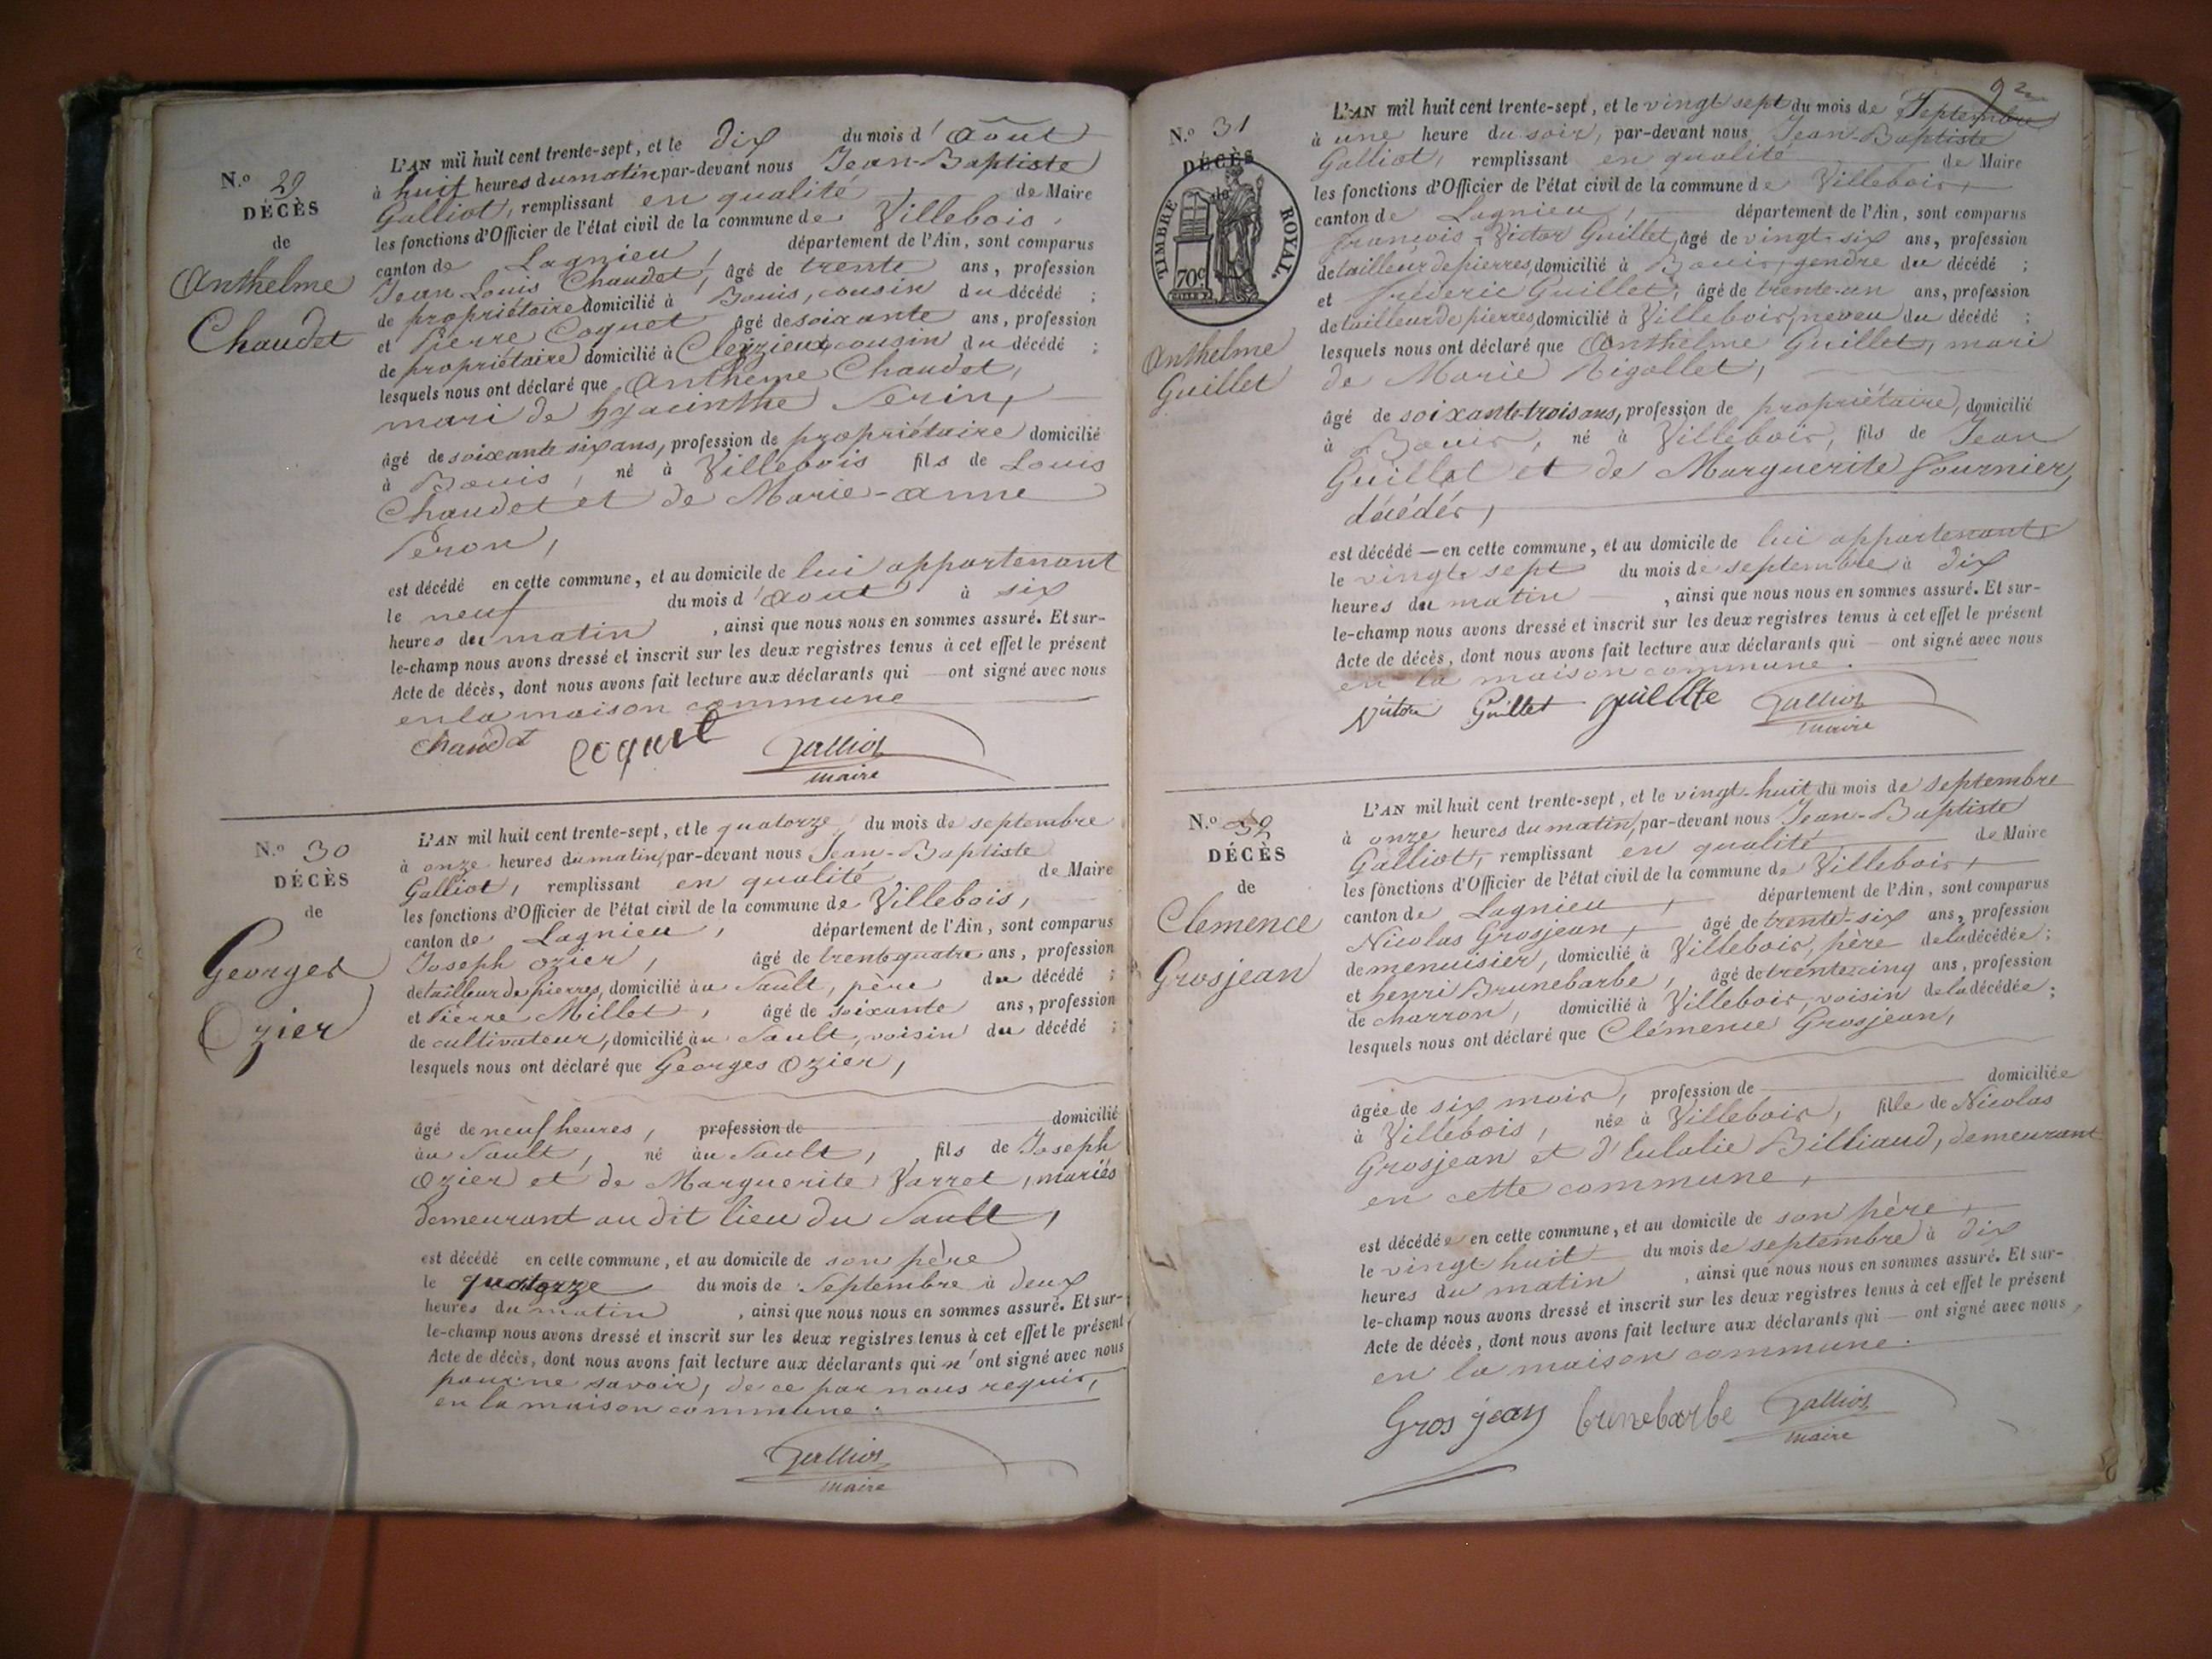 N.º 29
DÉCÈS
de
Anthelme
Chaudet
L'AN mil huit cent trente-sept, et le dix du mois d'août
à huit heures du matin par-devant nous Jean-Baptiste
Galliot, remplissant en qualité de Maire
les fonctions d'Officier de l'état civil de la commune de Villebois,
canton de Lagnieu, département de l'Ain, sont comparus
Jean Louis Chaudet, âgé de trente ans, profession
de propriétaire domicilié à Bouis, cousin du décédé ;
et Pierre Coquet âgé de soixante ans, profession
de propriétaire domicilié à Cleyzieux cousin du décédé ;
lesquels nous ont déclaré que Antheme Chaudet,
mari de hyacinthe Serin,
âgé de soixante six ans, profession de propriétaire domicilié
à Bouis, né à Villebois fils de Louis
Chaudet et de Marie-anne
Peron,
est décédé en cette commune, et au domicile de lui appartenant
le neuf du mois d'aout à six
heures du matin, ainsi que nous nous en sommes assuré. Et sur-
le-champ nous avons dressé et inscrit sur les deux registres tenus à cet effet le présent
Acte de décès, dont nous avons fait lecture aux déclarants qui — ont signé avec nous
en la maison commune
chaudet coquet Galliot
maire
N.º 30
DÉCÈS
de
Georges
Ozier
L'AN mil huit cent trente-sept, et le quatorze du mois de septembre
à onze heures du matin, par-devant nous Jean-Baptiste
Galliot, remplissant en qualité de Maire
les fonctions d'Officier de l'état civil de la commune de Villebois,
canton de Lagnieu, département de l'Ain, sont comparus
Joseph Ozier, âgé de trente quatre ans, profession
de tailleur de pierres, domicilié au Sault, père du décédé ;
et Pierre Millet, âgé de soixante ans, profession
de cultivateur, domicilié au Sault, voisin du décédé ;
lesquels nous ont déclaré que Georges Ozier,
âgé de neuf heures, profession de domicilié
au Sault, né au Sault, fils de Joseph
Ozier et de Marguerite Varret, mariés
demeurant au dit lieu du Sault,
est décédé en cette commune, et au domicile de son père
le quatorze du mois de Septembre à deux
heures du matin, ainsi que nous nous en sommes assuré. Et sur-
le-champ nous avons dressé et inscrit sur les deux registres tenus à cet effet le présent
Acte de décès, dont nous avons fait lecture aux déclarants qui n'ont signé avec nous
pour ne savoir, de ce par nous requis,
en la maison commune.
Galliot
maire
92
N.º 31
DÉCÈS
de
TIMBRE ROYAL.
70c
Anthelme
Guillet
L'AN mil huit cent trente-sept, et le vingt sept du mois de Septembre
à une heure du soir, par-devant nous Jean-Baptiste
Galliot, remplissant en qualité de Maire
les fonctions d'Officier de l'état civil de la commune de Villebois,
canton de Lagnieu, département de l'Ain, sont comparus
françois-Victor Guillet, âgé de vingt-six ans, profession
de tailleur de pierres, domicilié à Bouis, gendre du décédé ;
et fréderic Guillet, âgé de trente-un ans, profession
de tailleur de pierres, domicilié à Villebois, neveu du décédé ;
lesquels nous ont déclaré que Anthelme Guillet, mari
de Marie Rigollet,
âgé de soixante-trois ans, profession de propriétaire, domicilié
à Bouis, né à Villebois, fils de Jean
Guillet et de Marguerite fournier,
décédés,
est décédé — en cette commune, et au domicile de lui appartenant
le vingt sept du mois de septembre à dix
heures du matin, ainsi que nous nous en sommes assuré. Et sur-
le-champ nous avons dressé et inscrit sur les deux registres tenus à cet effet le présent
Acte de décès, dont nous avons fait lecture aux déclarants qui — ont signé avec nous
en la maison commune.
Victor Guillet Galliot
maire
N.º 32
DÉCÈS
de
Clemence
Grosjean
L'AN mil huit cent trente-sept, et le vingt-huit du mois de septembre
à onze heures du matin, par-devant nous Jean-Baptiste
Galliot, remplissant en qualité de Maire
les fonctions d'Officier de l'état civil de la commune de Villebois,
canton de Lagnieu, département de l'Ain, sont comparus
Nicolas Grosjean, âgé de trente-six ans, profession
de menuisier, domicilié à Villebois, père de la décédée ;
et henri Brunebarbe, âgé de trente cinq ans, profession
de charron, domicilié à Villebois, voisin de la décédée ;
lesquels nous ont déclaré que Clémence Grosjean,
âgée de six mois, profession de domiciliée
à Villebois, née à Villebois, fille de Nicolas
Grosjean et d'Eulalie Billiaud, demeurant
en cette commune,
est décédée en cette commune, et au domicile de son père,
le vingt huit du mois de septembre à dix
heures du matin, ainsi que nous nous en sommes assuré. Et sur-
le-champ nous avons dressé et inscrit sur les deux registres tenus à cet effet le présent
Acte de décès, dont nous avons fait lecture aux déclarants qui — ont signé avec nous,
en la maison commune.
Gros jean brunebarbe Galliot
maire